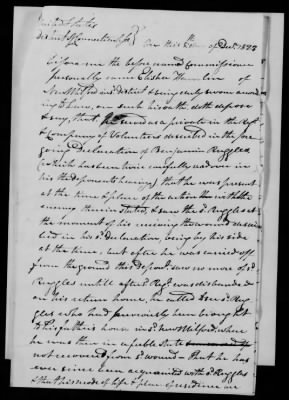 United States
District of Connecticut Ss On this 2 day of Decr. 1822
Before me the before named Commissioner
personally came Elisha Hamlin of
New Milford in sd. district & being duly sworn accord
ing to law, on such his oath, doth depose
& say, that he served as a private in the Regt.
& Company of Volunteers described in the fore
going Declaration of Benjamin Ruggles
(which has been twice carefully read over in
his the deponents hearing) that he was present
at the time & place of the action then with the
enemy therein Stated, & saw the sd. Ruggles at
the moment of his receiving the wound descri
bed in his sd. declaration, being by his side
at the time; but after he was carried off
from the ground this Depont. saw no more of sd.
Ruggles untill after Regt. was disbanded
on his return home, he called & see sd. Rug
gles who had previously been brought
to his fathers house in sd. New Milford where
he was then in a feeble state
not recovered from sd. wound — that he has
ever since been acquainted with sd. Ruggles
& that his mode of life & place of residence are